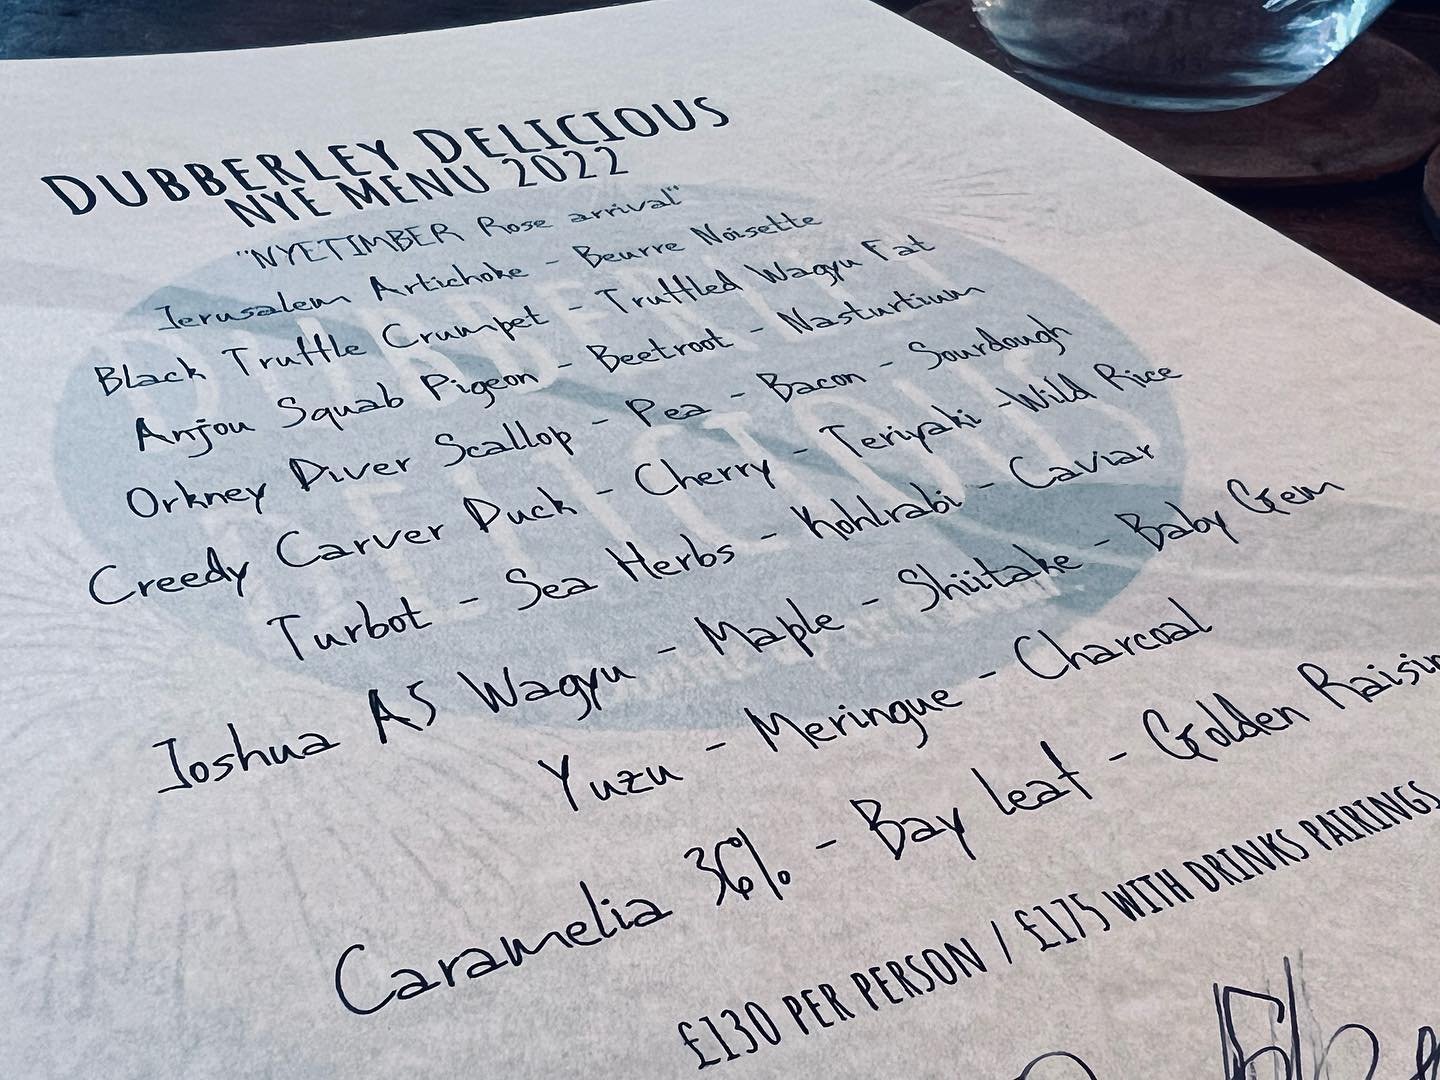 DUBBERLEY DELICIOUS
NYE MENU 2022
"NYETIMBER Rose arrival"
Jerusalem Artichoke - Beurre Noisette
Black Truffle Crumpet - Truffled Wagyu Fat
Anjou Squab Pigeon - Beetroot - Nasturtium
Orkney Diver Scallop - Pea - Bacon - Sourdough
Creedy Carver Duck - Cherry - Teriyaki - Wild Rice
Turbot - Sea Herbs - Kohlrabi - Caviar
Joshua A5 Wagyu - Maple - Shiitake - Baby Gem
Yuzu - Meringue - Charcoal
Caramelia 36% - Bay leaf - Golden Raisin
£130 PER PERSON / £175 WITH DRINKS PAIRINGS
DUBBERLEY
DELICIOUS